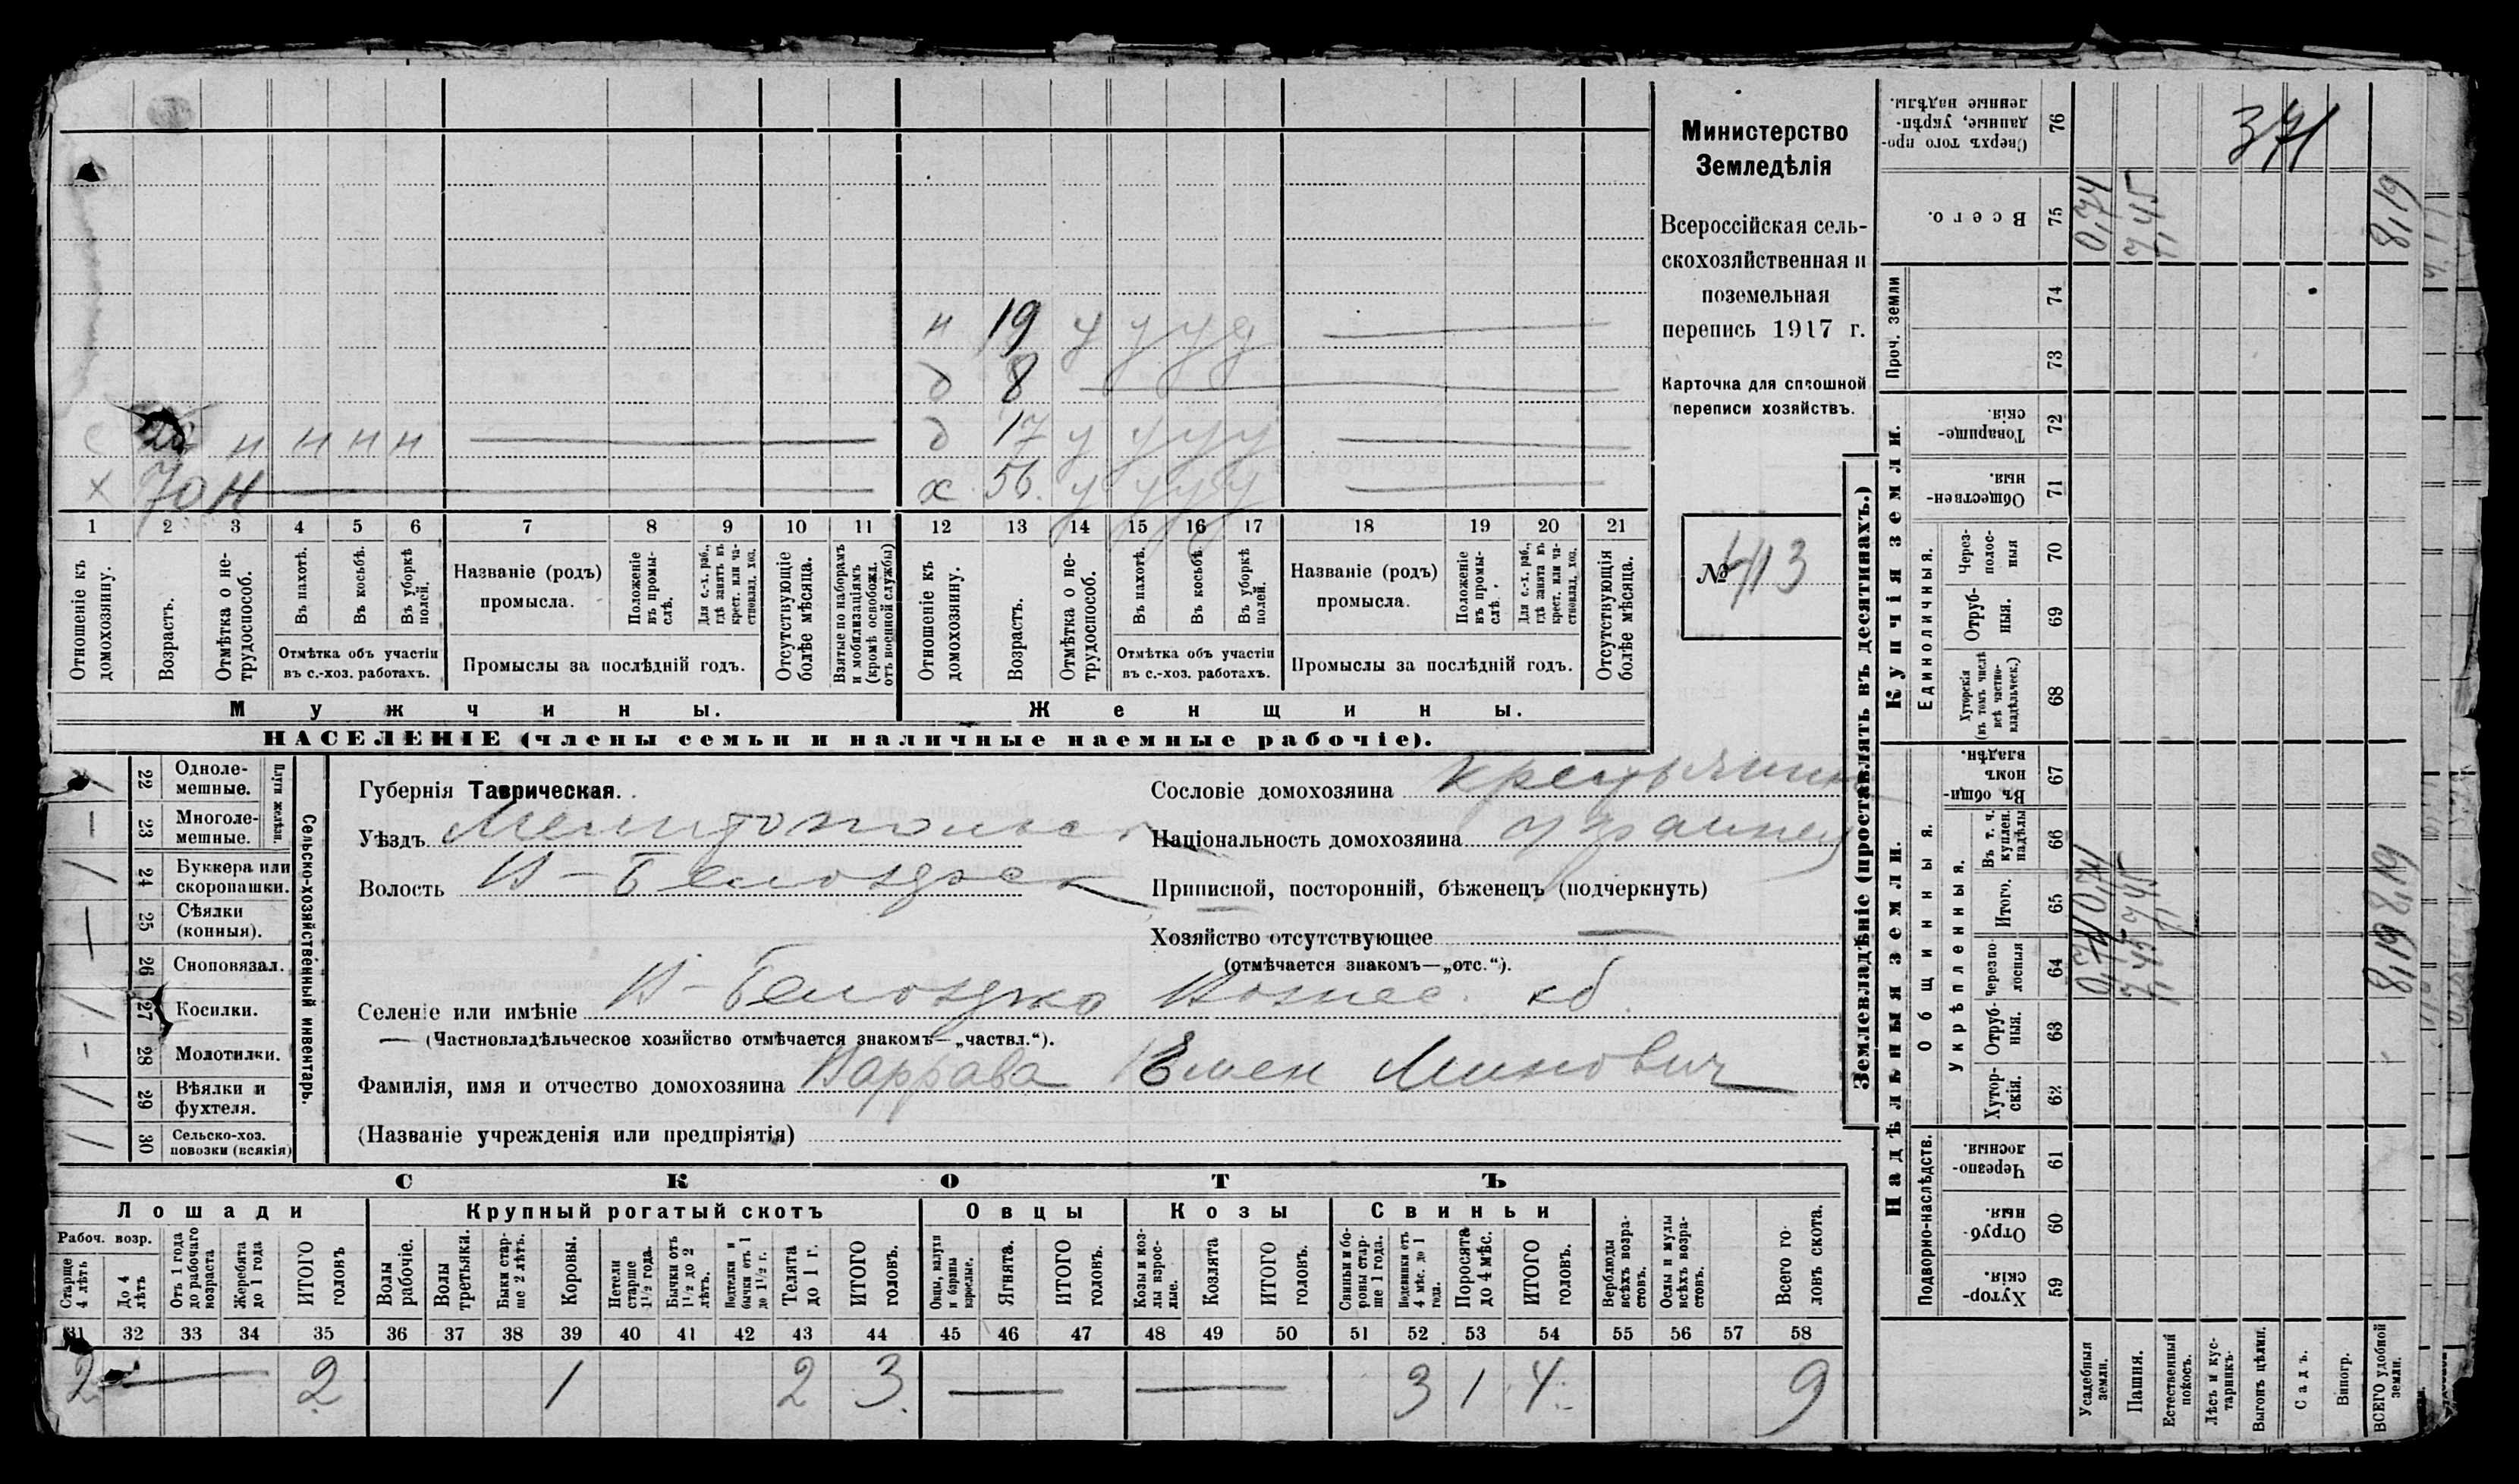 Министерство
Земледѣлія
Всероссійская сель-
скохозяйственная и
поземельная
перепись 1917 г.
Карточка для сплошной
переписи хозяйствъ.
№ 413
371
н 19 у у у у
д 8
с н н н н д 17 у у у у
х 70 н х 56. у у у у
1 2 3 4 5 6 7 8 9 10 11 12 13 14 15 16 17 18 19 20 21
Отношеніе къ домохозяину.
Возрастъ.
Отмѣтка о не-трудоспособ.
Въ пахотѣ.
Въ косьбѣ.
Въ уборкѣ полей.
Отмѣтка объ участіи
въ с.-хоз. работахъ.
Названіе (родъ)
промысла.
Положеніе въ промы-слѣ.
Для с.-х. раб., гдѣ занятъ въ крест. или ча-стновлад. хоз.
Промыслы за послѣдній годъ.
Отсутствующіе болѣе мѣсяца.
Взятые по наборамъ и мобилизаціямъ (кромѣ освобожд. отъ военной службы)
Отношеніе къ домохозяину.
Возрастъ.
Отмѣтка о не-трудоспособ.
Въ пахотѣ.
Въ косьбѣ.
Въ уборкѣ полей.
Отмѣтка объ участіи
въ с.-хоз. работахъ.
Названіе (родъ)
промысла.
Положеніе въ промы-слѣ.
Для с.-х. раб., гдѣ занята въ крест. или ча-стновлад. хоз.
Промыслы за послѣдній годъ.
Отсутствующія болѣе мѣсяца.
Мужчины. Женщины.
НАСЕЛЕНІЕ (члены семьи и наличные наемные рабочіе).
Сельско-хозяйственный инвентарь.
Плуги желѣзн.
22 Одноле-мешные. /
23 Многоле-мешные. —
24 Буккера или скоропашки. /
25 Сѣялки (конныя). —
26 Сноповязал.
27 Косилки. /
28 Молотилки. -
29 Вѣялки и фухтеля. /
30 Сельско-хоз. повозки (всякія) /
Губернія Таврическая.
Уѣздъ Мелитопольск
Волость В-Белозерск
Сословіе домохозяина крестьянин
Національность домохозяина украинец
Приписной, посторонній, бѣженецъ (подчеркнуть)
Хозяйство отсутствующее —
(отмѣчается знакомъ—„отс.“).
Селеніе или имѣніе В-Белозерка Вознес. об.
— (Частновладѣльческое хозяйство отмѣчается знакомъ—„частвл.“).
Фамилія, имя и отчество домохозяина Варрава Емен Минович
(Названіе учрежденія или предпріятія)
СКОТЪ
Лошади Крупный рогатый скотъ Овцы Козы Свиньи
Рабоч. возр.
Старше 4 лѣтъ
До 4 лѣтъ
Отъ 1 года до рабочаго возраста
Жеребята до 1 года
ИТОГО головъ
Волы рабочіе.
Волы третьяки.
Быки стар-ше 2 лѣтъ.
Коровы.
Нетели старше 1½ года.
Бычки отъ 1½ до 2 лѣтъ.
Телки и бычки отъ 1 до 1½ г.
Телята до 1 г.
ИТОГО головъ.
Овцы, валухи и бараны взрослые.
Ягнята.
ИТОГО головъ.
Козы и коз-лы взрос-лые.
Козлята
ИТОГО головъ.
Свиньи и бо-ровы стар-ше 1 года.
Подсвинки отъ 4 мѣс. до 1 года.
Поросята до 4 мѣс.
ИТОГО головъ.
Верблюды всѣхъ возра-стовъ.
Ослы и мулы всѣхъ возра-стовъ.
Всего го-ловъ скота.
31 32 33 34 35 36 37 38 39 40 41 42 43 44 45 46 47 48 49 50 51 52 53 54 55 56 57 58
2 — 2 1 2 3. — — 3 1 4 9
Землевладѣніе (проставлять въ десятинахъ.)
Надѣльныя земли. Купчія земли. Проч. земли
Подворно-наслѣдств.
Общинныя.
Укрѣпленныя.
Единоличныя.
Сверхъ того про-данные, укрѣп-ленные надѣлы. 76
Всего. 75 0,74 7,45 8,19
74
73
Товарище-скія. 72
Обществен-ныя. 71
Через-полос-ныя 70
Отруб-ныя. 69
Хуторскія (въ томъ числѣ всѣ частно-владѣльческ.) 68
Въ общи-номъ владѣн. 67
Въ т. ч. куплен. надѣлы 66
Итого. 65 0,74 7,45 8,19
Черезпо-лосныя 64 0,74 7,45 8,19
Отруб-ныя. 63
Хутор-скія. 62
Черезпо-лосныя. 61
Отруб-ныя. 60
Хутор-скія. 59
Усадебныя земли.
Пашня.
Естественный покосъ.
Лѣсъ и кус-тарникъ.
Выгонъ цѣлин.
Садъ.
Виногр.
ВСЕГО удобной земли.